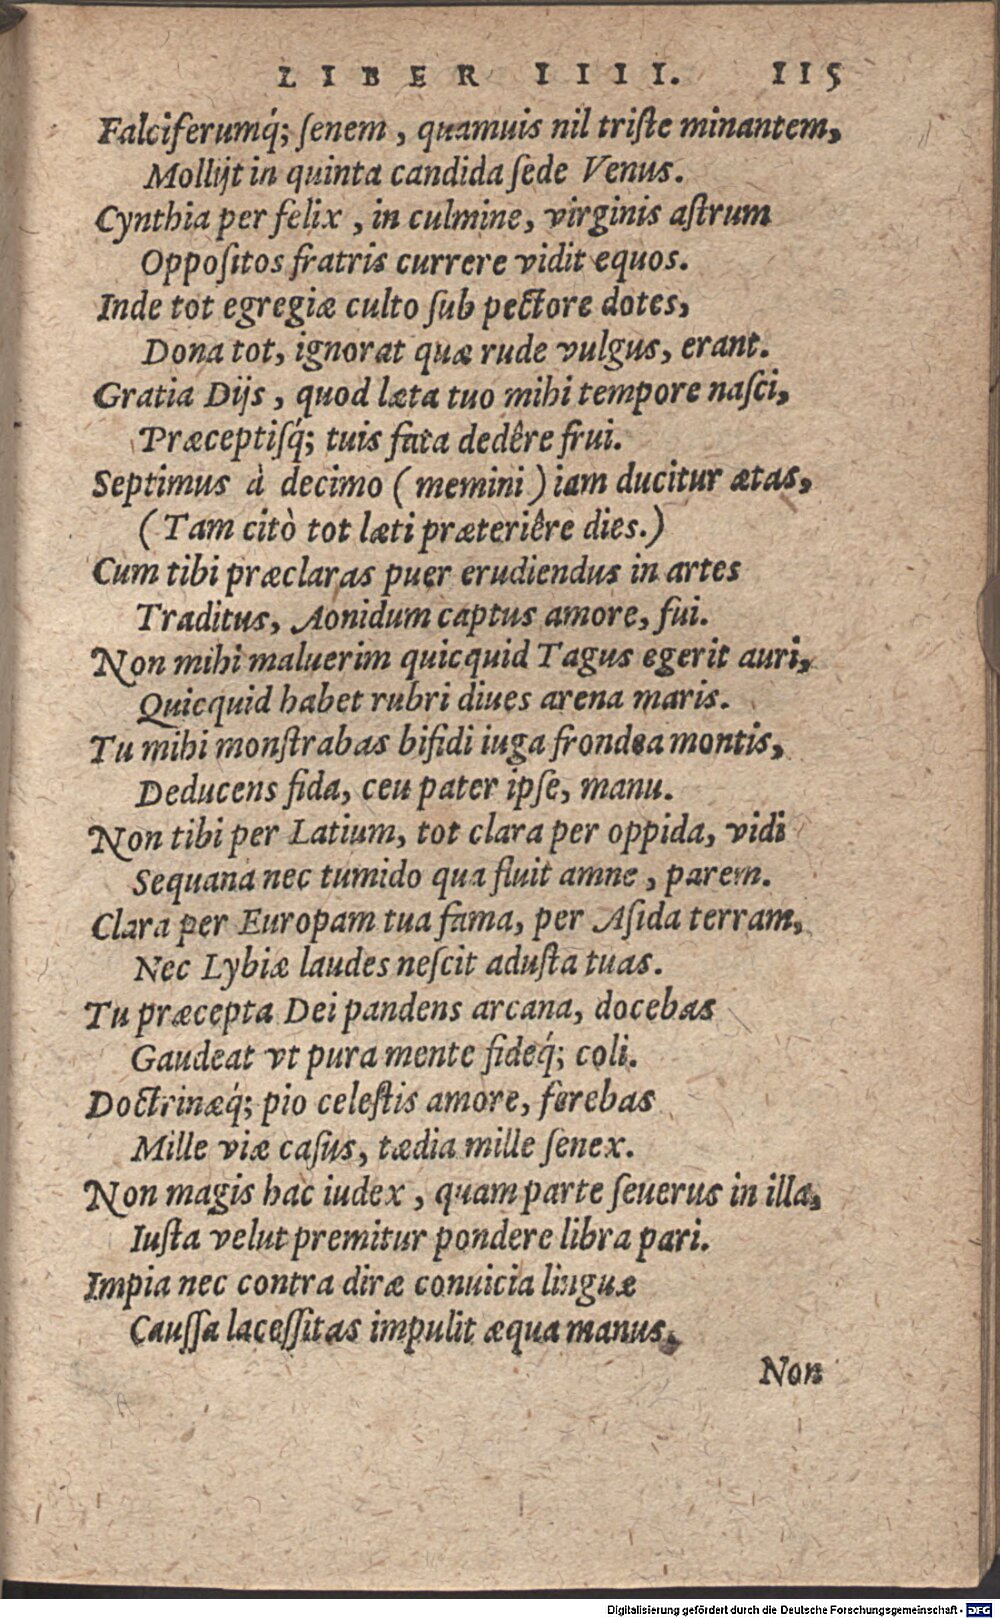 LIBER IIII. 115
Falciferumq́; ſenem, quamuis nil triſte minantem,
Mollijt in quinta candida ſede Venus.
Cynthia per felix, in culmine, virginis aſtrum
Oppoſitos fratris currere vidit equos.
Inde tot egregiæ culto ſub pectore dotes,
Dona tot, ignorat quæ rude vulgus, erant.
Gratia Dijs, quod læta tuo mihi tempore naſci,
Præceptiſq́; tuis fata dedêre frui.
Septimus à decimo (memini) iam ducitur ætas,
(Tam citò tot læti præteriêre dies.)
Cum tibi præclaras puer erudiendus in artes
Traditus, Aonidum captus amore, fui.
Non mihi maluerim quicquid Tagus egerit auri,
Quicquid habet rubri diues arena maris.
Tu mihi monſtrabas bifidi iuga frondea montis,
Deducens fida, ceu pater ipſe, manu.
Non tibi per Latium, tot clara per oppida, vidi
Sequana nec tumido qua fluit amne, parem.
Clara per Europam tua fama, per Aſida terram,
Nec Lybiæ laudes neſcit aduſta tuas.
Tu præcepta Dei pandens arcana, docebas
Gaudeat vt pura mente fideq́; coli.
Doctrinæq́; pio celeſtis amore, ferebas
Mille viæ caſus, tædia mille ſenex.
Non magis hac iudex, quam parte ſeuerus in illa,
Iuſta velut premitur pondere libra pari.
Impia nec contra diræ conuicia linguæ
Cauſſa laceſſitas impulit æqua manus,
Non
Digitalisierung gefördert durch die Deutsche Forschungsgemeinschaft - DFG